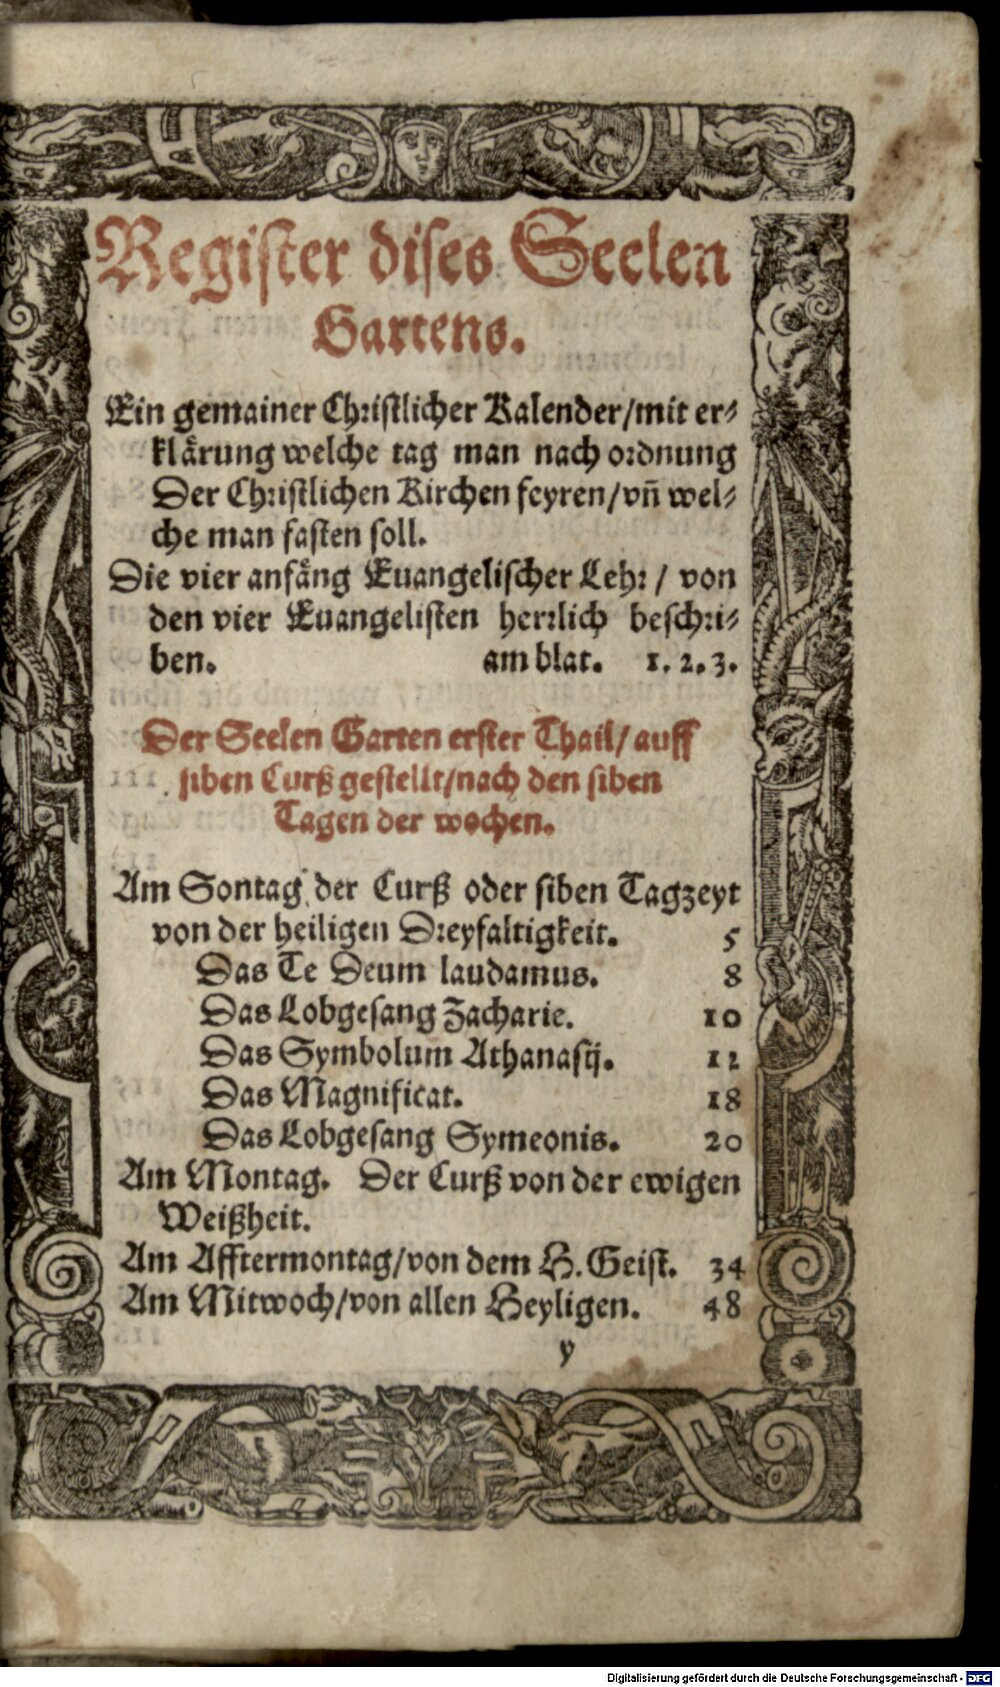 Register dises Seelen
Gartens.
Ein gemainer Christlicher Kalender/mit er⸗
klaͤrung welche tag man nach ordnung
Der Christlichen Kirchen feyren/vñ wel⸗
che man fasten soll.
Die vier anfaͤng Euangelischer Lehr/ von
den vier Euangelisten herrlich beschri⸗
ben. am blat. 1. 2. 3.
Der Seelen Garten erster Thail/ auff
siben Curß gestellt/nach den siben
Tagen der wochen.
Am Sontag der Curß oder siben Tagzeyt
von der heiligen Dreyfaltigkeit. 5
Das Te Deum laudamus. 8
Das Lobgesang Zacharie. 10
Das Symbolum Athanasij. 12
Das Magnificat. 18
Das Lobgesang Symeonis. 20
Am Montag. Der Curß von der ewigen
Weißheit.
Am Afftermontag/von dem H. Geist. 34
Am Mitwoch/von allen Heyligen. 48
y
Digitalisierung gefördert durch die Deutsche Forschungsgemeinschaft - DFG